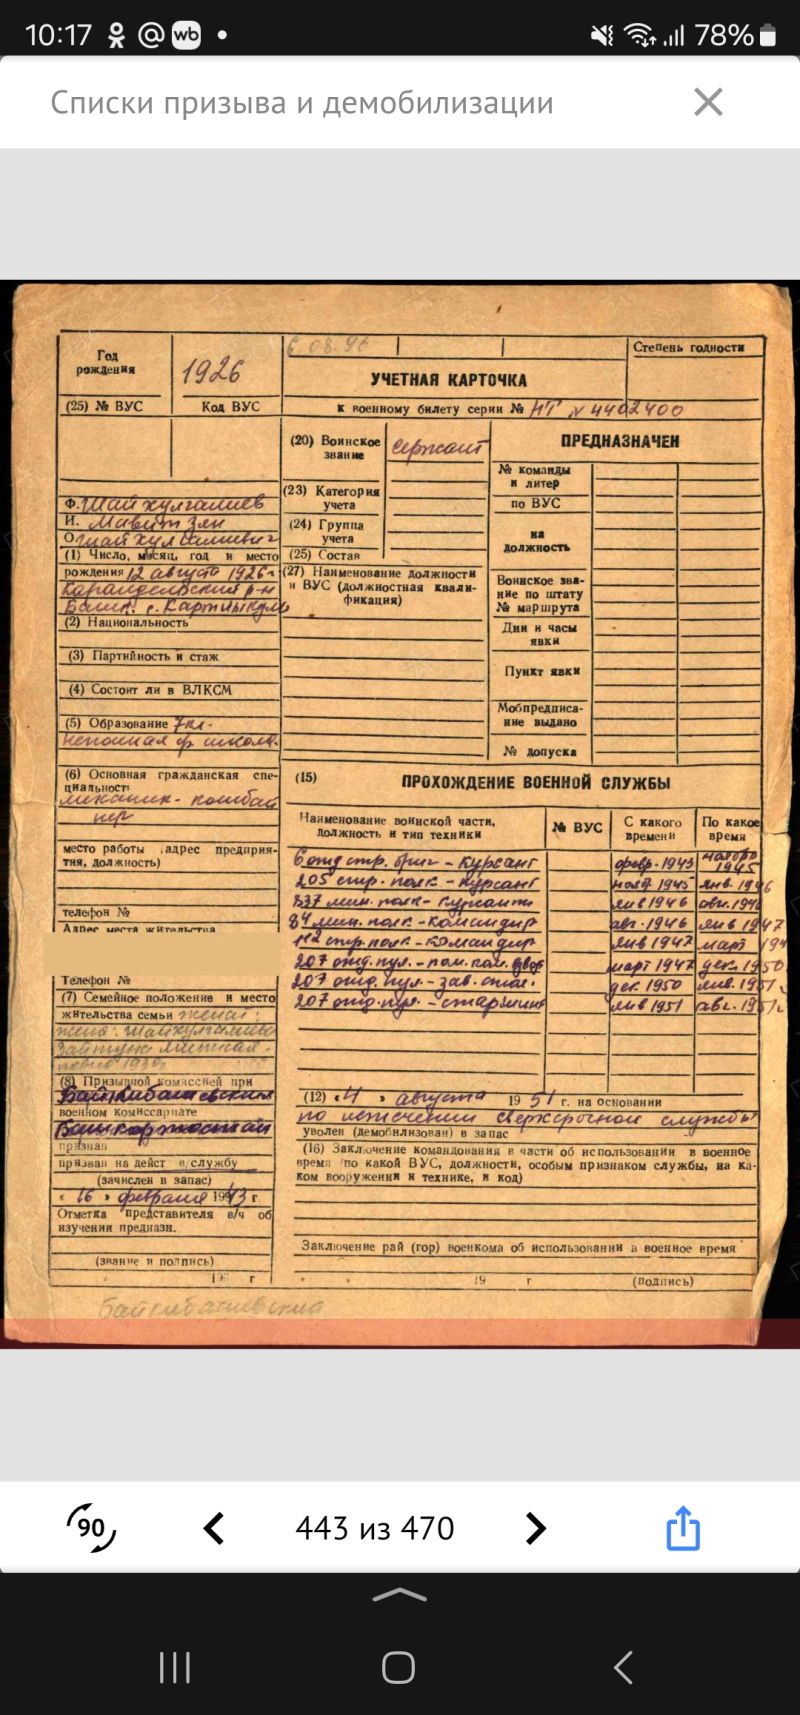 10:17
wb
78%
Списки призыва и демобилизации
Год рождения
1926
6.08.96
Степень годности
УЧЕТНАЯ КАРТОЧКА
(25) № ВУС
Код ВУС
к военному билету серии № НТ № 4402400
(20) Воинское звание
сержант
ПРЕДНАЗНАЧЕН
№ команды и литер
(23) Категория учета
по ВУС
(24) Группа учета
на должность
(25) Состав
(27) Наименование должности и ВУС (должностная квалификация)
Воинское звание по штату
№ маршрута
Дни и часы явки
Пункт явки
Мобпредписание выдано
№ допуска
Ф. Шайхулгалиев
И. Мавитзян
О. Шайхулгалиевич
(1) Число, месяц, год и место
рождения 12 августа 1926 г.
Караидельский р-н
Башк. с.
(2) Национальность
(3) Партийность и стаж
(4) Состоит ли в ВЛКСМ
(5) Образование 7 кл.
неполная ср. школа.
(6) Основная гражданская специальность
механик - комбайнер
место работы (адрес предприятия, должность)
телефон №
Адрес места жительства
Телефон №
(7) Семейное положение и место
жительства семьи жена:
жена:
(8) Призывной комиссией при
Байкибашевский
военном комиссариате
признан
призван на действ в/службу
(зачислен в запас)
« 16 » февраля 1943 г
Отметка представителя в/ч об
изучении предназн.
(звание и подпись)
196 г
(15) ПРОХОЖДЕНИЕ ВОЕННОЙ СЛУЖБЫ
Наименование воинской части, должность и тип техники
№ ВУС
С какого времени
По какое время
6 отд стр. бриг - курсант февр. 1943 ноябрь 1945
205 стр. полк - курсант нояб 1945 янв. 1946
мин. полк - курсант янв 1946 авг. 1946
84 мин. полк - командир авг. 1946 янв 1947
112 стр. полк - командир янв 1947 март 194
207 отд. пул. - пом. ком. март 1947 дек. 1950
207 отд. пул. - зав. дек 1950 янв. 1951
207 отд. пул. - старшина янв 1951 авг. 1951
(12) « 4 » августа 1951 г. на основании
по истечении сверхсрочной службы
уволен (демобилизован) в запас
(16) Заключение командования в части об использовании в военное
время (по какой ВУС, должности, особым признаком службы, на ка-
ком вооружении и технике, и код)
Заключение рай (гор) военкома об использовании в военное время
« » 19 г (подпись)
Байкибашевский
90
443 из 470